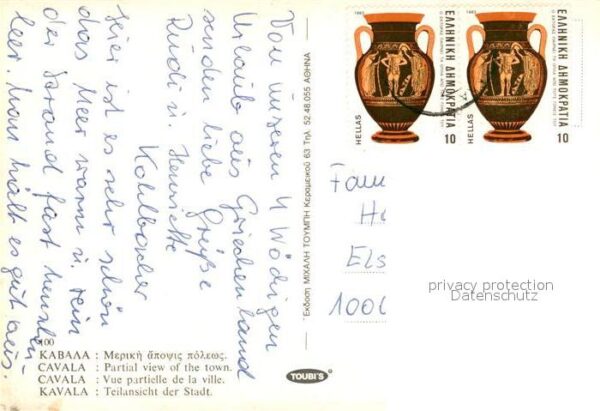 Von unserem 4 Wöchigen
Urlaub aus Griechenland
senden liebe Grüße
Rudi u. Henriette
Kohlbacher
Hier ist es sehr schön
das Meer warm u. rein
der Strand fast menschen-
leer. Man hält es gut aus.
100
ΚΑΒΑΛΑ : Μερική ἄποψις πόλεως.
CAVALA : Partial view of the town.
CAVALA : Vue partielle de la ville.
KAVALA : Teilansicht der Stadt.
Ἔκδοση ΜΙΧΑΛΗ ΤΟΥΜΠΗ Κεραμεικοῦ 63 Τηλ. 52.48.055 ΑΘΗΝΑ
TOUBI'S
1983
ΕΛΛΗΝΙΚΗ ΔΗΜΟΚΡΑΤΙΑ
HELLAS
10
1983
ΕΛΛΗΝΙΚΗ ΔΗΜΟΚΡΑΤΙΑ
HELLAS
10
Fam
H
Els
100
privacy protection
Datenschutz